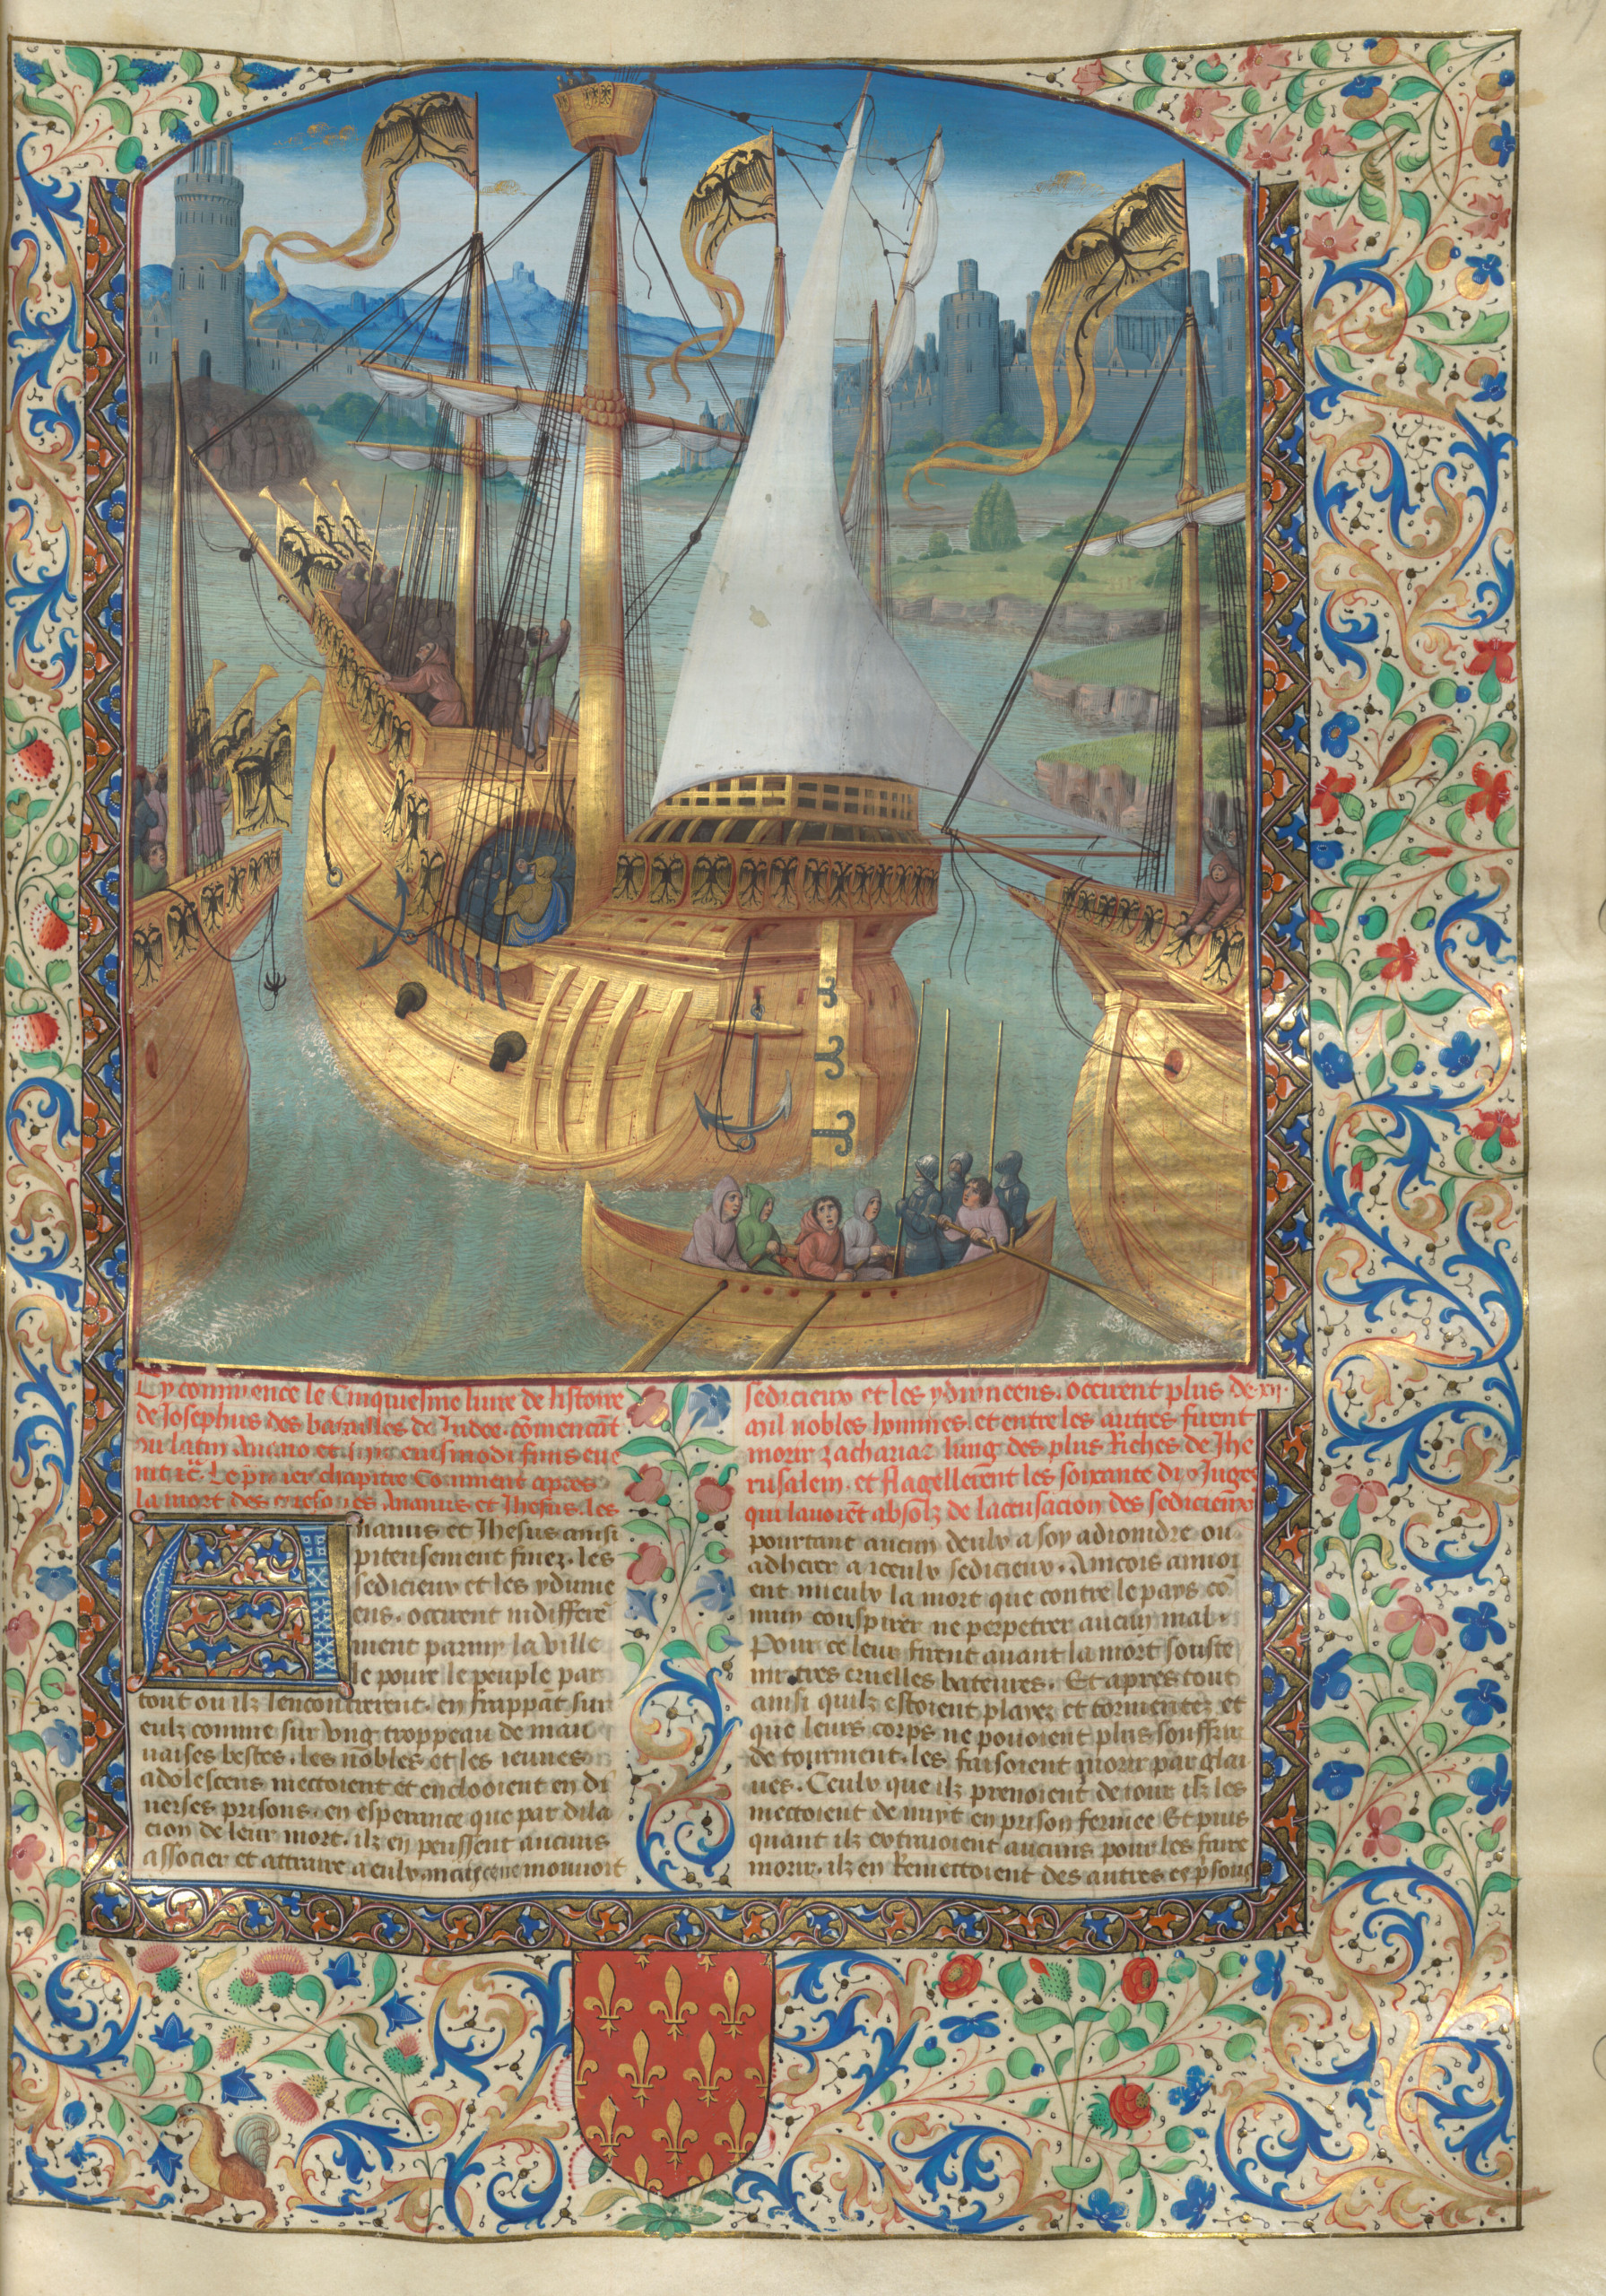 Cy commence le Cinquiesme livre de histoire
de Josephus des batailles de Judee. cõmencant
ou latin Anano et
Le pm̃ier chapitre Comment apres
la mort des Ananus et Jhesus. les
sedicieux et les ydumeens. occirent plus de xij.
mil nobles hommes. et entre les autres firent
morir zacharias lung des plus Riches de Jhe
rusalem. et flagellerent les soixante dix Juges
qui lavoiẽt absolz de lacusacion des sedicieux
Ananus et Jhesus ainsi
piteusement finez. les
sedicieux et les ydume
ens. occirent indifferẽ
ment parmy la ville
le povre le peuple par
tout ou ilz lencontrerent. en frappãt sur
eulz comme sur vng troppeau de mau
vaises bestes. les nobles et les ieunes
adolescens mectoient et enclooient en di
verses prisons. en esperance que par dila
cion de leur mort. ilz en peussent aucuns
associer et attraire a eulx. mais mouvoit
pourtant aucun deulx a soy adioindre ou
adherer a iceulx sedicieux. Aincois aimoi
ent mieulx la mort que contre le pays cõ
mun conspirer ne perpetrer aucun mal.
Pour ce leur firent avant la mort souste
nir tres cruelles bateures. Et apres tout
ainsi quilz estoient playez et tormentez et
que leurs corps ne povoient plus souffrir
de tourment. les faisoient morir par glai
ves. Ceulx que ilz prenoient de iour ilz les
mectoient de nuyt en prison fermee Et puis
quant ilz extraioient aucuns pour les faire
morir. ilz en Remectoient des autres